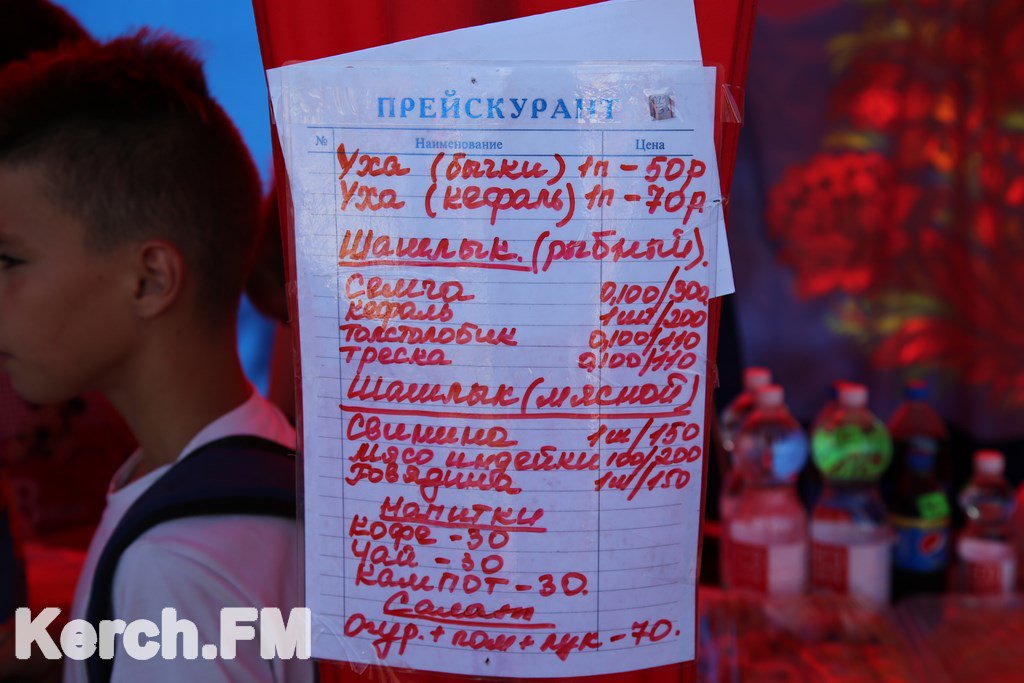 ПРЕЙСКУРАНТ
№ Наименование Цена
Уха (бычки) 1п - 50р
Уха (кефаль) 1п - 70р
Шашлык (рыбный).
Семга 0,100/30
кефаль 1шт/200
толстолобик 0,100/110
треска 0,100/110
Шашлык (мясной)
Свинина 1ш/150
мясо индейки 100/200
Говядина 1ш/150
Напитки
кофе - 30
чай - 30
кампот - 30.
Салат
огур. + пом + лук - 70.
Kerch.FM